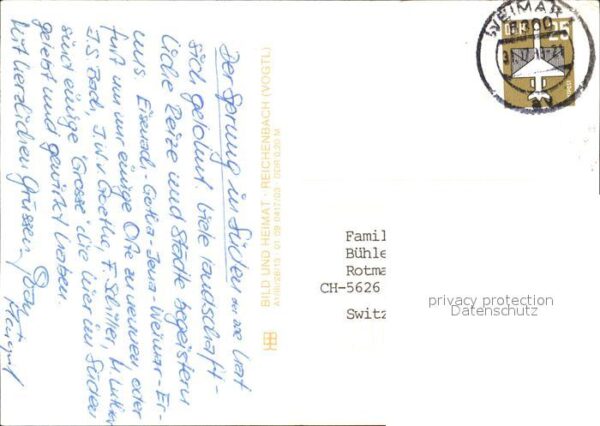 Der Sprung in Süden hat
sich gelohnt. Viele landschaft-
liche Reize und Städte begeistern
uns. Eisenach-Gotha-Jena-Weimar-Er-
furt um nur einige Orte zu nennen, oder
J.S. Bach, J.W.v Goethe, F. Schiller, M. Luther
sind einige "Grosse" die hier im Süden
gelebt und gewirkt haben.
Mit herzlichen Grüssen
BILD UND HEIMAT · REICHENBACH (VOGTL)
WEIMAR
5300
DDR 25
Famil
Bühle
Rotma
CH-5626
Switz
privacy protection
Datenschutz